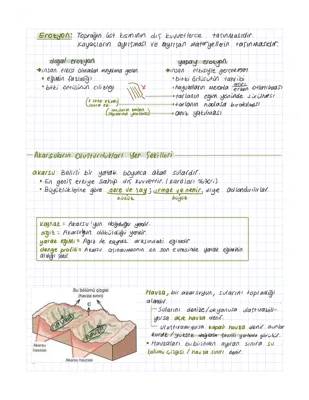 Erozyon: Toprağın üst kısmının dış kuvvetlerce taşınmasıdır.
Kayaçların ayrışması ve ayrışan materyallerin taşınmasıdır.
doğal erozyon
insan etkisi olmadan meydana gelen
eğimin fazlalığı
bitki örtüsünün cılızlığı
yapay erozyon
insan etkisiyle gerçekleşen
bitki örtüsünün tahribi
hayvanların merada erken otlatılması
tarlaların eğim yönünde sürülmesi
tarlanın nadasa bırakılması
anız yakılması
Akarsuların Oluşturdukları Yer Şekilleri
akarsu: Belirli bir yatak boyunca akan sulardır.
En geniş etkiye sahip dış kuvvettir.
Büyüklüklerine göre dere ve çay; ırmak ya nehir, diye adlandırılırlar.
küçük
büyük
kaynak = Akarsu'yun doğduğu yerdir.
ağız = Akarsuyun döküldüğü yerdir.
yatak eğimi = Ağız ile kaynak arasındaki eğimdir.
denge profili = Akarsu aşındırmasının en son evresinde yatak eğiminin
aldığı şekil
Su bölümü çizgisi
(havza sınırı)
Akarsu
havzası
Akarsu havzası
Havza, bir akarsuyun, sularını topladığı
alandır.
Sularını denize/okyanusa ulaştırabili-
yorsa açık havza denir.
Ulaştıramıyorsa kapalı havza denir.
Havzaları birbirinden ayıran sınıra su
bölümü çizgisi / havza sınırı denir.